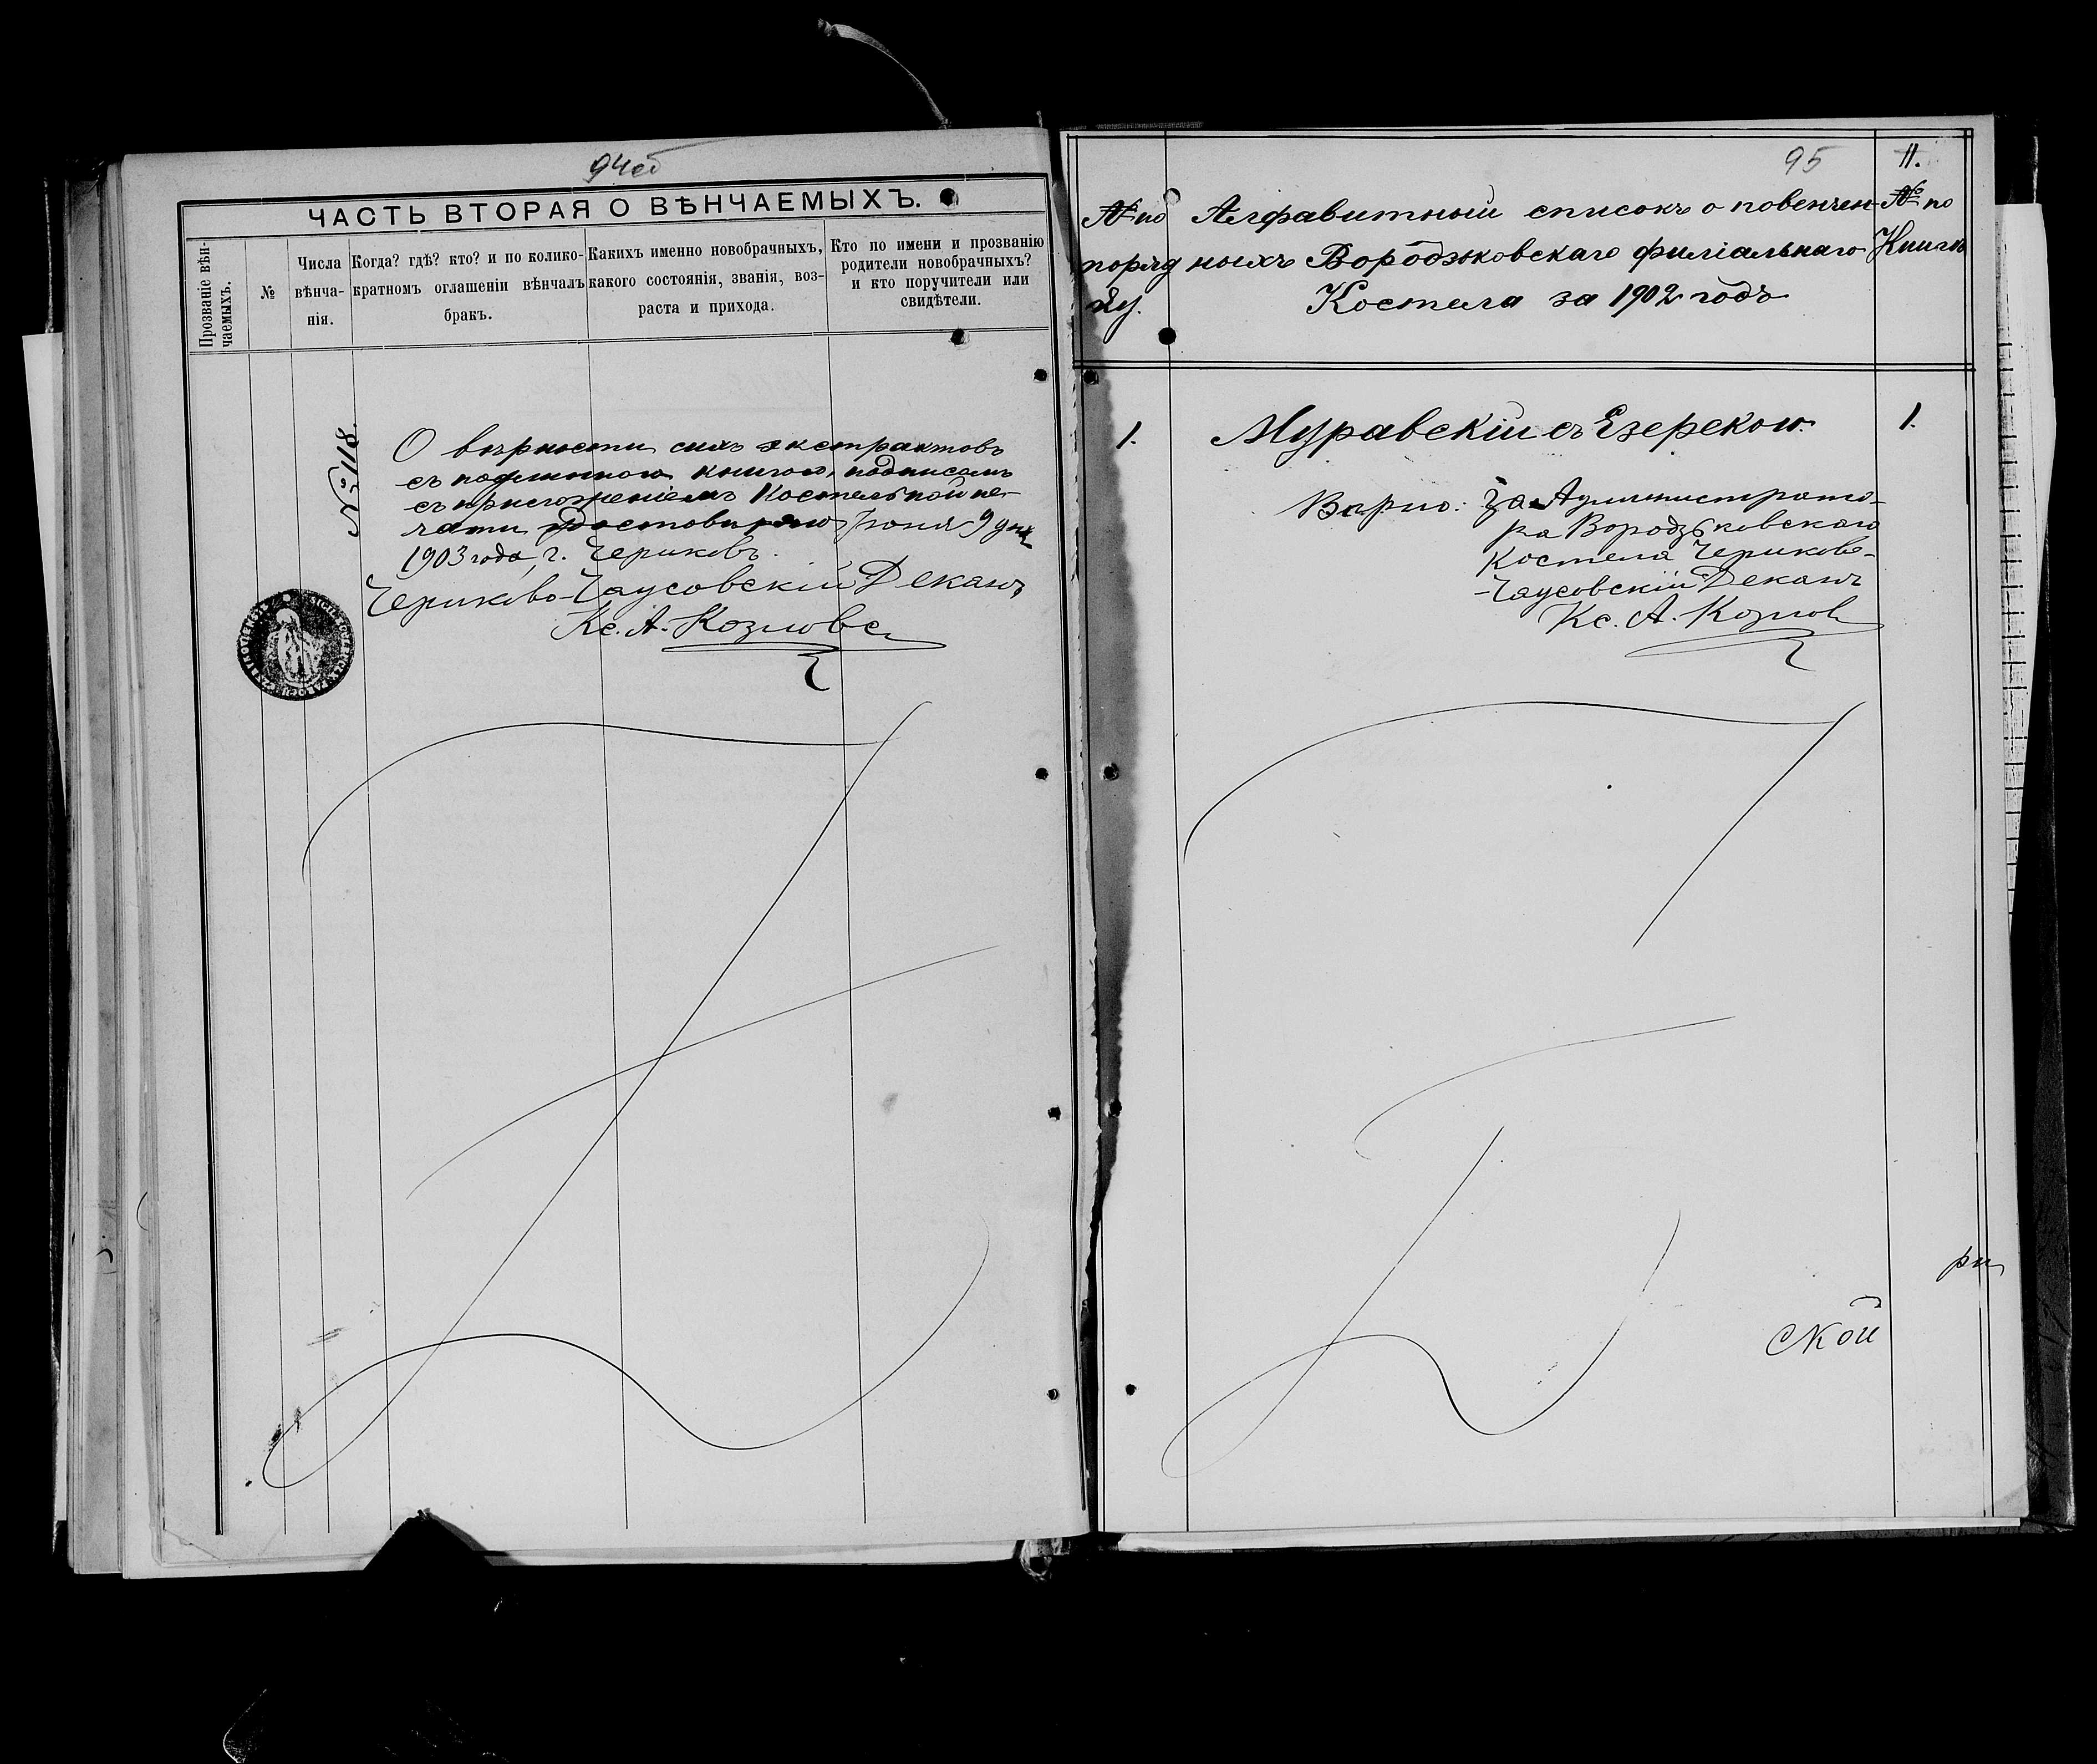 94об
ЧАСТЬ ВТОРАЯ О ВѢНЧАЕМЫХЪ.
Прозваніе вѣн-
чаемыхъ.
№
Числа
вѣнча-
нія.
Когда? гдѣ? кто? и по колико-
кратномъ оглашеніи вѣнчалъ
бракъ.
Какихъ именно новобрачныхъ,
какого состоянія, званія, воз-
раста и прихода.
Кто по имени и прозванію
родители новобрачныхъ?
и кто поручители или
свидѣтели.
№ 118.
О вѣрности сихъ экстрактовъ
съ подлинною книгою, подписомъ
съ приложеніемъ Костельной пе-
чати удостовѣряю Іюня 9 дня
1903 года, г. Чериковъ.
Чериково-Чаусовскій Деканъ
Кс. А. Козлов
95
11.
№ по
поряд
ку.
Алфавитный списокъ о повенчен-
ныхъ Вородзьковскаго филіальнаго
Костела за 1902 годъ
№ по
Книгѣ
1.
Муравскій съ Езерскою.
1.
Вѣрно: За Администрато-
ра Вородзьковскаго
Костела Чериково-
-Чаусовскій Деканъ
Кс. А. Козлов
ри
ской